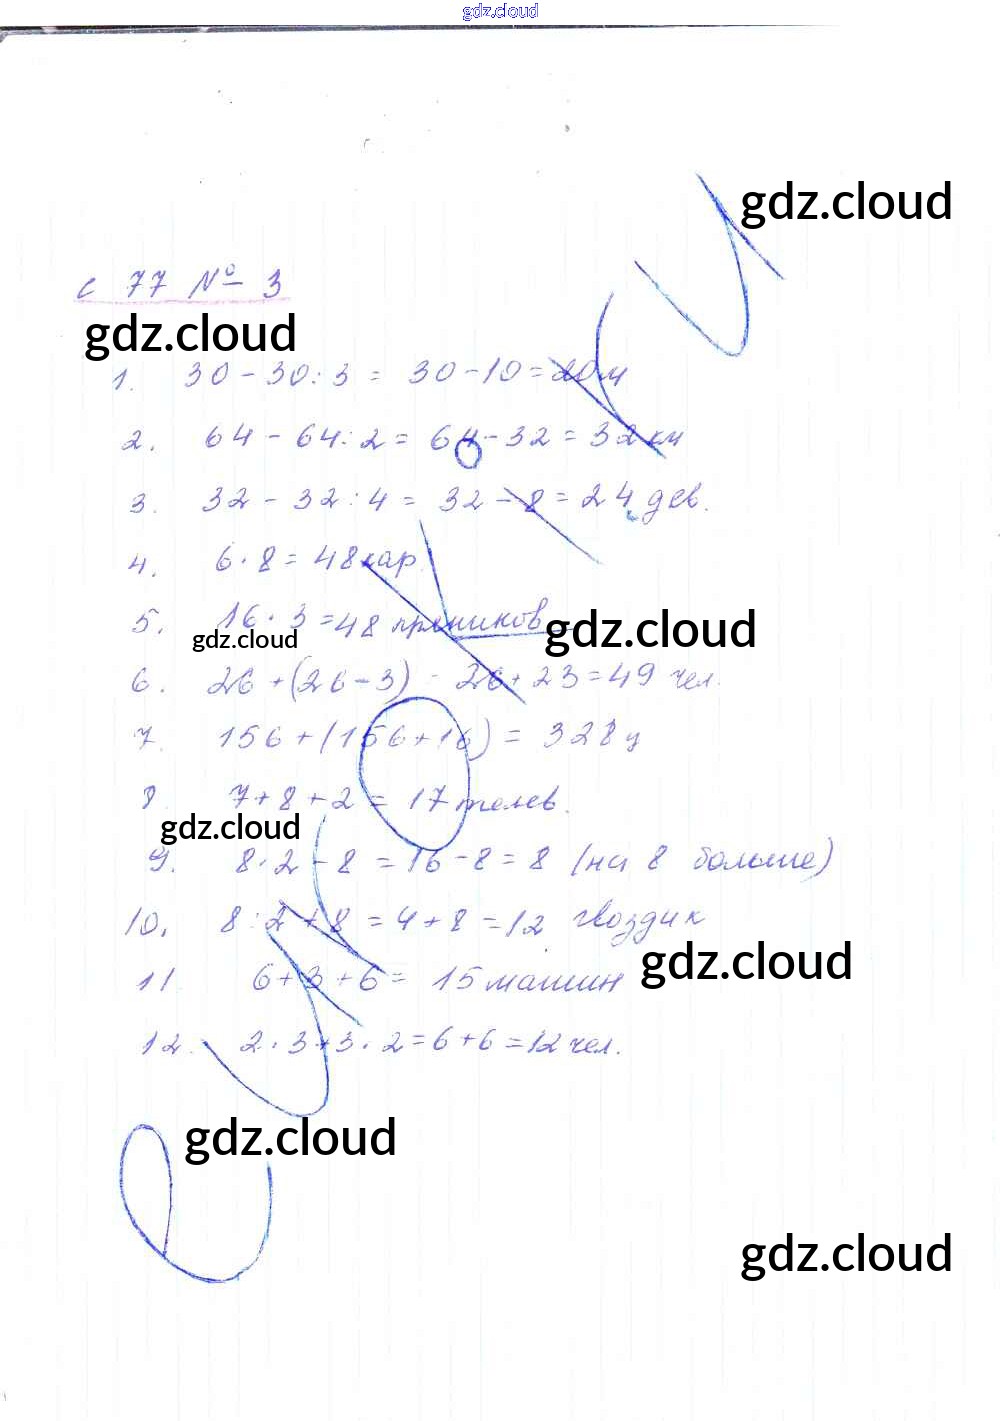 gdz.cloud
gdz.cloud
с 77 № 3
gdz.cloud
1. 30 - 30 : 3 = 30 - 10 = 20 м
2. 64 - 64 : 2 = 64 - 32 = 32 км
3. 32 - 32 : 4 = 32 - 8 = 24 дев.
4. 6 · 8 = 48 кар.
5. 16 · 3 = 48 пряников
gdz.cloud
gdz.cloud
6. 26 + (26 - 3) = 26 + 23 = 49 чел.
7. 156 + (156 + 16) = 328 ц
8. 7 + 8 + 2 = 17 телев.
gdz.cloud
9. 8 · 2 - 8 = 16 - 8 = 8 (на 8 больше)
10. 8 : 2 + 8 = 4 + 8 = 12 гвоздик
gdz.cloud
11. 6 + 3 + 6 = 15 машин
12. 2 · 3 + 3 · 2 = 6 + 6 = 12 чел.
gdz.cloud
gdz.cloud